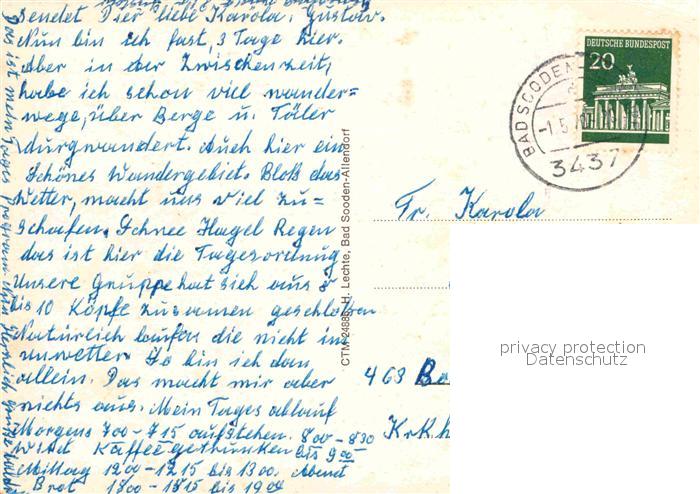 sendet Dier liebe Karola, Gustav.
Nun bin ich fast, 3 Tage hier.
Aber in der Zwischenzeit,
habe ich schon viel wander=
wege, über Berge u. Täler
durgwandert. Auch hier ein
Schönes Wandergebiet. Bloß das
Wetter, macht uns viel zu=
schafen. Schnee Hagel Regen
das ist hier die Tagesordnung
Unsere Gruppe hat sich aus 8
bis 10 Köpfe zusamen geschlossen
Natürlich laufen die nicht im
unwetter. So bin ich dan
allein. Das macht mir aber
nichts aus. Mein Tages ablauf
Morgens 700-715 aufstehen. 800-830
wird Kaffee getrunken bis 900
Mittag 1200-1215 bis 1300. Abend
Brot 1800-1815 bis 1900
Das ist mein Tages Programm
CTM 24886 H. Lechte, Bad Sooden-Allendorf
DEUTSCHE BUNDESPOST
20
BAD SOODEN
-1.5.70
3437
Fr. Karola
463 Bo
Krkh
privacy protection
Datenschutz